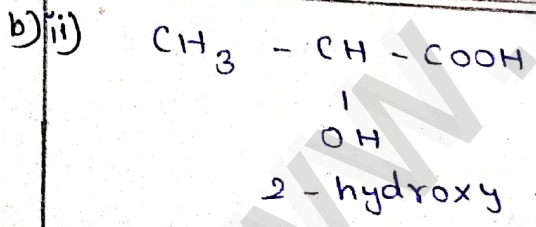 b) ii) CH3 - CH - COOH
|
OH
2 - hydroxy